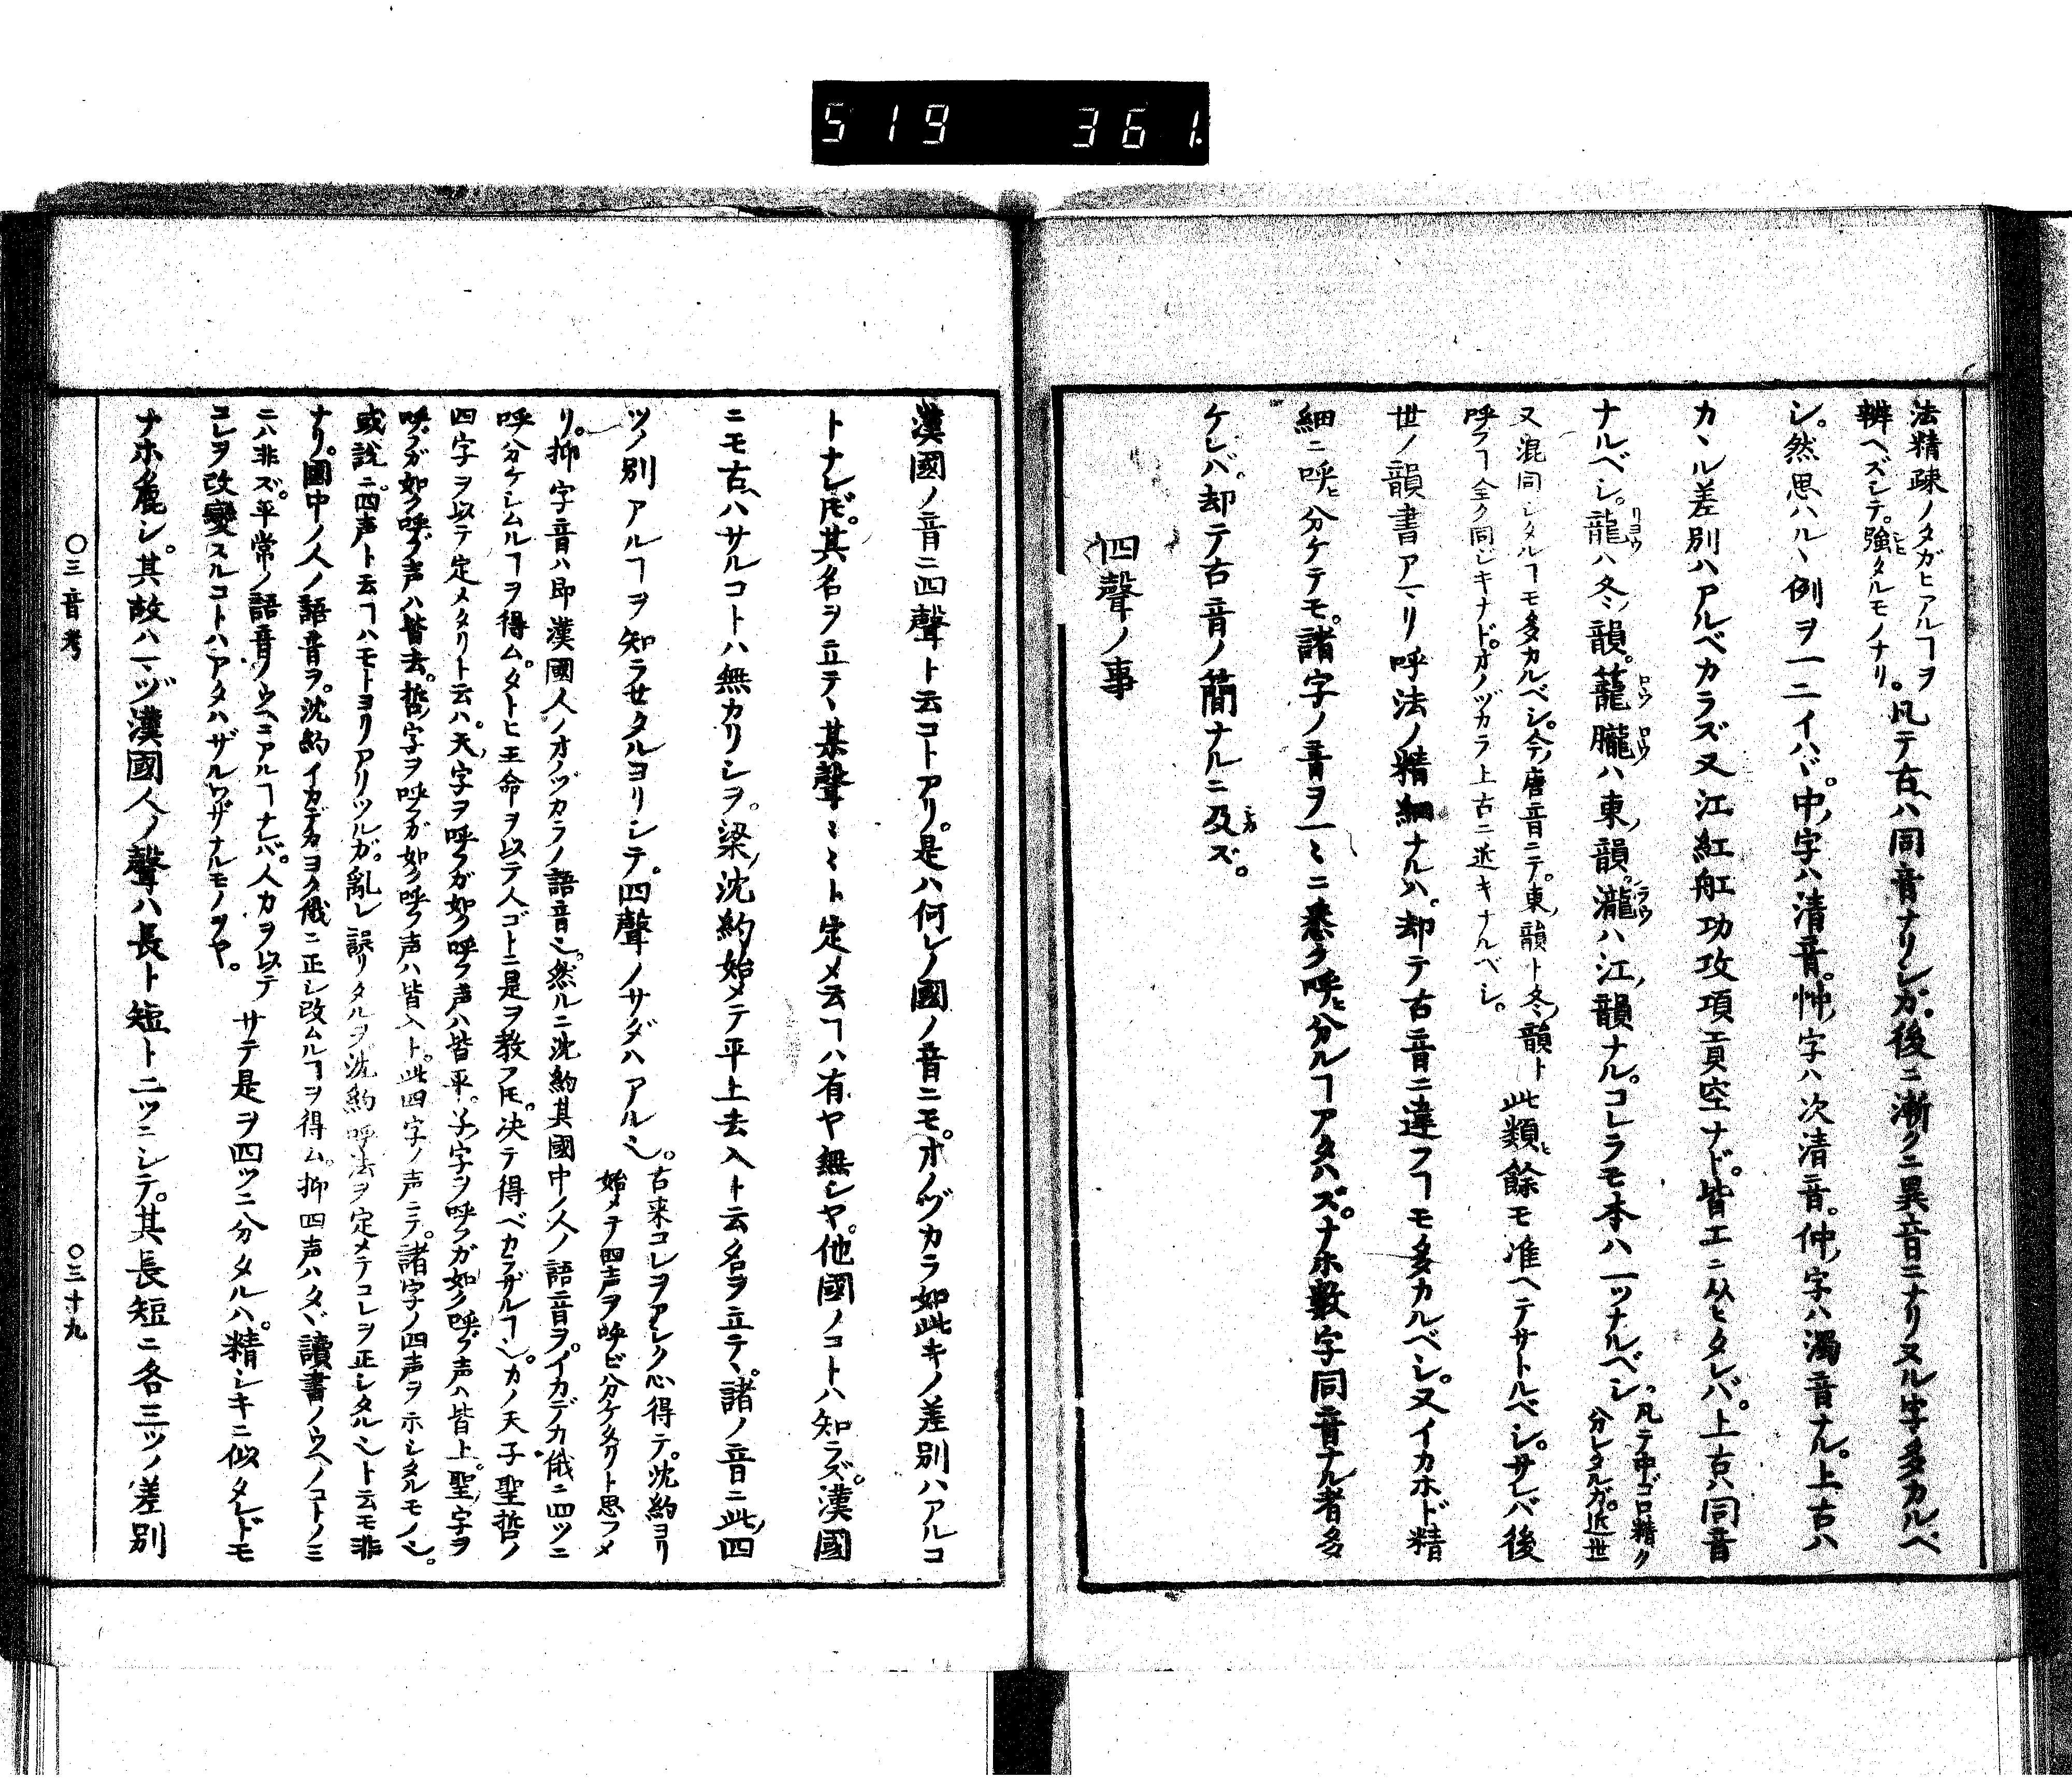 519 361.
法精疎ノタガヒアルヿヲ
辨ヘズシテ。強タルモノナリ。
凡テ古ヘハ同音ナリシガ。後ニ漸クニ異音ニナリヌル字多カルベ
シ。然思ハルヽ例ヲ一二イハヾ。中ノ字ハ清音。忡ノ字ハ次清音。仲ノ字ハ濁音ナル。上古ハ
カヽル差別ハアルベカラズ又江紅舡功攻項貢空ナド。皆工ニ从ヒタレバ。上古ハ同音
ナルベシ。龍ハ冬ノ韻。蘢朧ハ東ノ韻。瀧ハ江ノ韻ナル。コレラモ本ハ一ツナルベシ。
リョウ
ロウ
ロウ
ラウ
凡テ中ゴロ精ク
分レタルガ。近世
又混同シタルヿモ多カルベシ。今ノ唐音ニテ。東ノ韻ト冬ノ韻ト
呼フヿ全ク同ジキナド。オノヅカラ上古ニ近キナルベシ。
此類ヒ餘モ准ヘテサトルベシ。サレバ後
世ノ韻書アマリ呼法ノ精細ナルハ。却テ古音ニ違フヿモ多カルベシ。又イカホド精
細ニ呼ヒ分ケテモ。諸字ノ音ヲ一〻ニ悉ク呼ヒ分ルヿアタハズ。ナホ数字同音ナル者多
ケレバ。却テ古音ノ簡ナルニ及ズ。
四聲ノ事
漢國ノ音ニ四聲ト云コトアリ。是ハ何レノ國ノ音ニモ。オノヅカラ如此キノ差別ハアルコ
トナレ𪜈。其名ヲ立テヽ某聲〻〻ト定メ云ヿハ有ヤ無シヤ。他國ノコトハ知ラズ。漢國
ニモ古ヘハサルコトハ無カリシヲ。梁ノ沈約始メテ平上去入ト云名ヲ立テヽ。諸ノ音ニ此ノ四
ツノ別アルヿヲ知ラセタルヨリシテ。四聲ノサダハアル也。
古来コレヲアシク心得テ。沈約ヨリ
始メテ四声ヲ呼ビ分ケタリト思フメ
リ。抑字音ハ即漢國人ノオノヅカラノ語音也。然ルニ沈約其國中ノ人ノ語音ヲ。イカデカ俄ニ四ツニ
呼分ケシムルヿヲ得ム。タトヒ王命ヲ以テ人ゴトニ是ヲ教フ𪜈。决テ得ベカラザルヿ也。カノ天子聖哲ノ
四字ヲ以テ定メタリト云ハ。天ノ字ヲ呼フガ如ク呼フ声ハ皆平。子ノ字ヲ呼フガ如ク呼ブ声ハ皆上。聖ノ字ヲ
呼ブガ如ク呼ブ声ハ皆去。哲ノ字ヲ呼フガ如ク呼フ声ハ皆入ト。此四字ノ声ニテ。諸字ノ四声ヲ示シタルモノ也。
或説ニ。四声ト云ヿハモトヨリアリツルガ。亂レ誤リタルヲ沈約呼法ヲ定メテコレヲ正シタル也ト云モ非
ナリ。國中ノ人ノ語音ヲ。沈約イカデカヨク俄ニ正シ改ムルヿヲ得ム。抑四声ハタヾ讀書ノウヘノコトノミ
ニハ非ズ。平常ノ語音ノウヘニアルヿナレバ。人力ヲ以テ
コレヲ改變スルコトハアタハザルワザナルモノヲヤ。
サテ是ヲ四ツニ分タルハ。精シキニ似タレドモ
ナホ麁シ。其故ハマヅ漢國人ノ聲ハ長ト短ト二ツニシテ。其長短ニ各三ツノ差別
〇三音考
〇三十九